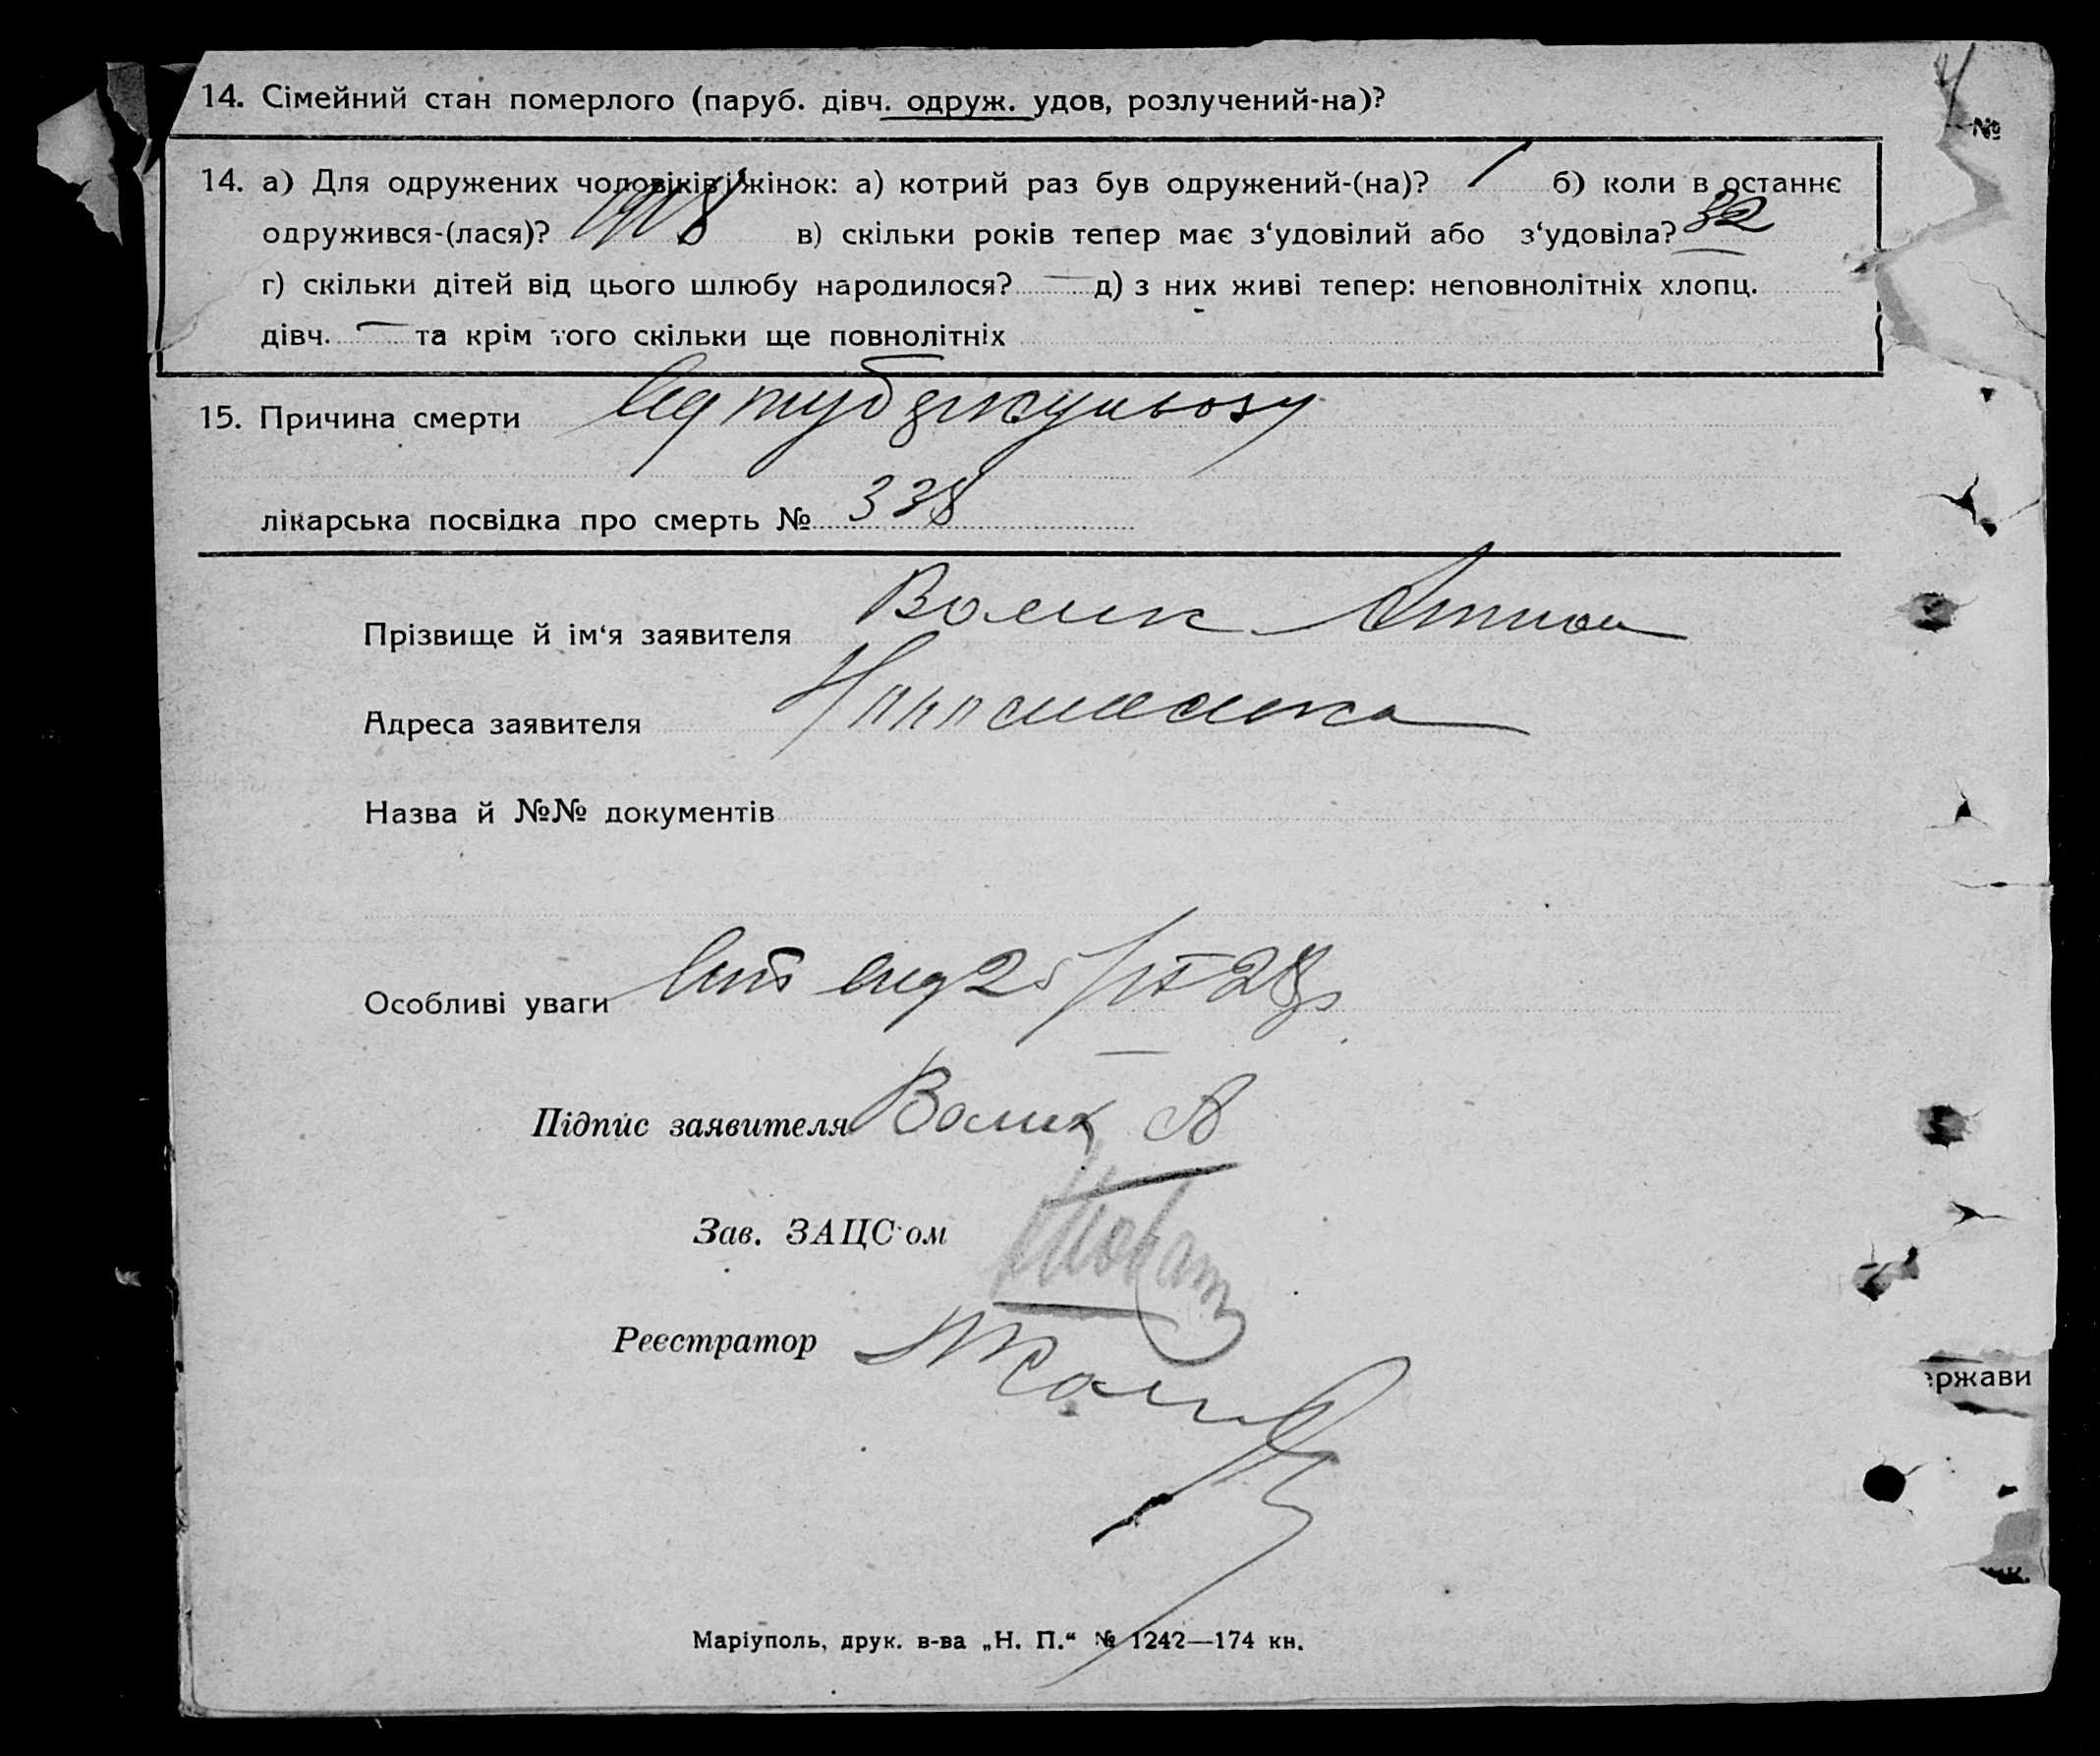 14. Сімейний стан померлого (паруб. дівч. одруж. удов, розлучений-на)?
№
14. а) Для одружених чоловіків і жінок: а) котрий раз був одружений-(на)? 1 б) коли в останнє
одружився-(лася)? 1918 в) скільки років тепер має з‘удовілий або з‘удовіла? 32
г) скільки дітей від цього шлюбу народилося? — д) з них живі тепер: неповнолітніх хлопц.
дівч. — та крім того скільки ще повнолітніх
15. Причина смерти від туберкульозу
лікарська посвідка про смерть № 338
Прізвище й ім‘я заявителя Волик Антон
Адреса заявителя
Назва й №№ документів
Особливі уваги від 25/IX 28р
Підпис заявителя Волик А
Зав. ЗАЦС‘ом
Реєстратор
ержави
Маріуполь, друк. в-ва „Н. П.“ № 1242—174 кн.